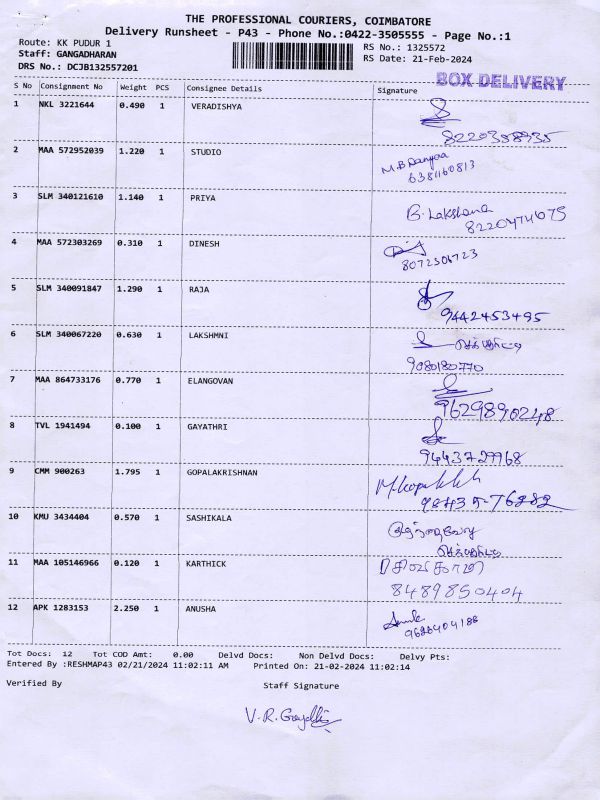 THE PROFESSIONAL COURIERS, COIMBATORE
Delivery Runsheet - P43 - Phone No.:0422-3505555 - Page No.:1
Route: KK PUDUR 1
RS No.: 1325572
Staff: GANGADHARAN
RS Date: 21-Feb-2024
DRS No.: DCJB132557201
BOX DELIVERY
S No Consignment No Weight PCS Consignee Details Signature
1 NKL 3221644 0.490 1 VERADISHYA
8220358935
2 MAA 572952039 1.220 1 STUDIO
6381160813
3 SLM 340121610 1.140 1 PRIYA
B. Lakshana
8220474075
4 MAA 572303269 0.310 1 DINESH
8072306723
5 SLM 340091847 1.290 1 RAJA
9442453495
6 SLM 340067220 0.630 1 LAKSHMNI
9080180770
7 MAA 864733176 0.770 1 ELANGOVAN
9629890248
8 TVL 1941494 0.100 1 GAYATHRI
9443727968
9 CMM 900263 1.795 1 GOPALAKRISHNAN
98435-76282
10 KMU 3434404 0.570 1 SASHIKALA
11 MAA 105146966 0.120 1 KARTHICK
சிவகாமி
8489850404
12 APK 1283153 2.250 1 ANUSHA
9626404188
Tot Docs: 12 Tot COD Amt: 0.00 Delvd Docs: Non Delvd Docs: Delvy Pts:
Entered By :RESHMAP43 02/21/2024 11:02:11 AM Printed On: 21-02-2024 11:02:14
Verified By Staff Signature
V.R.